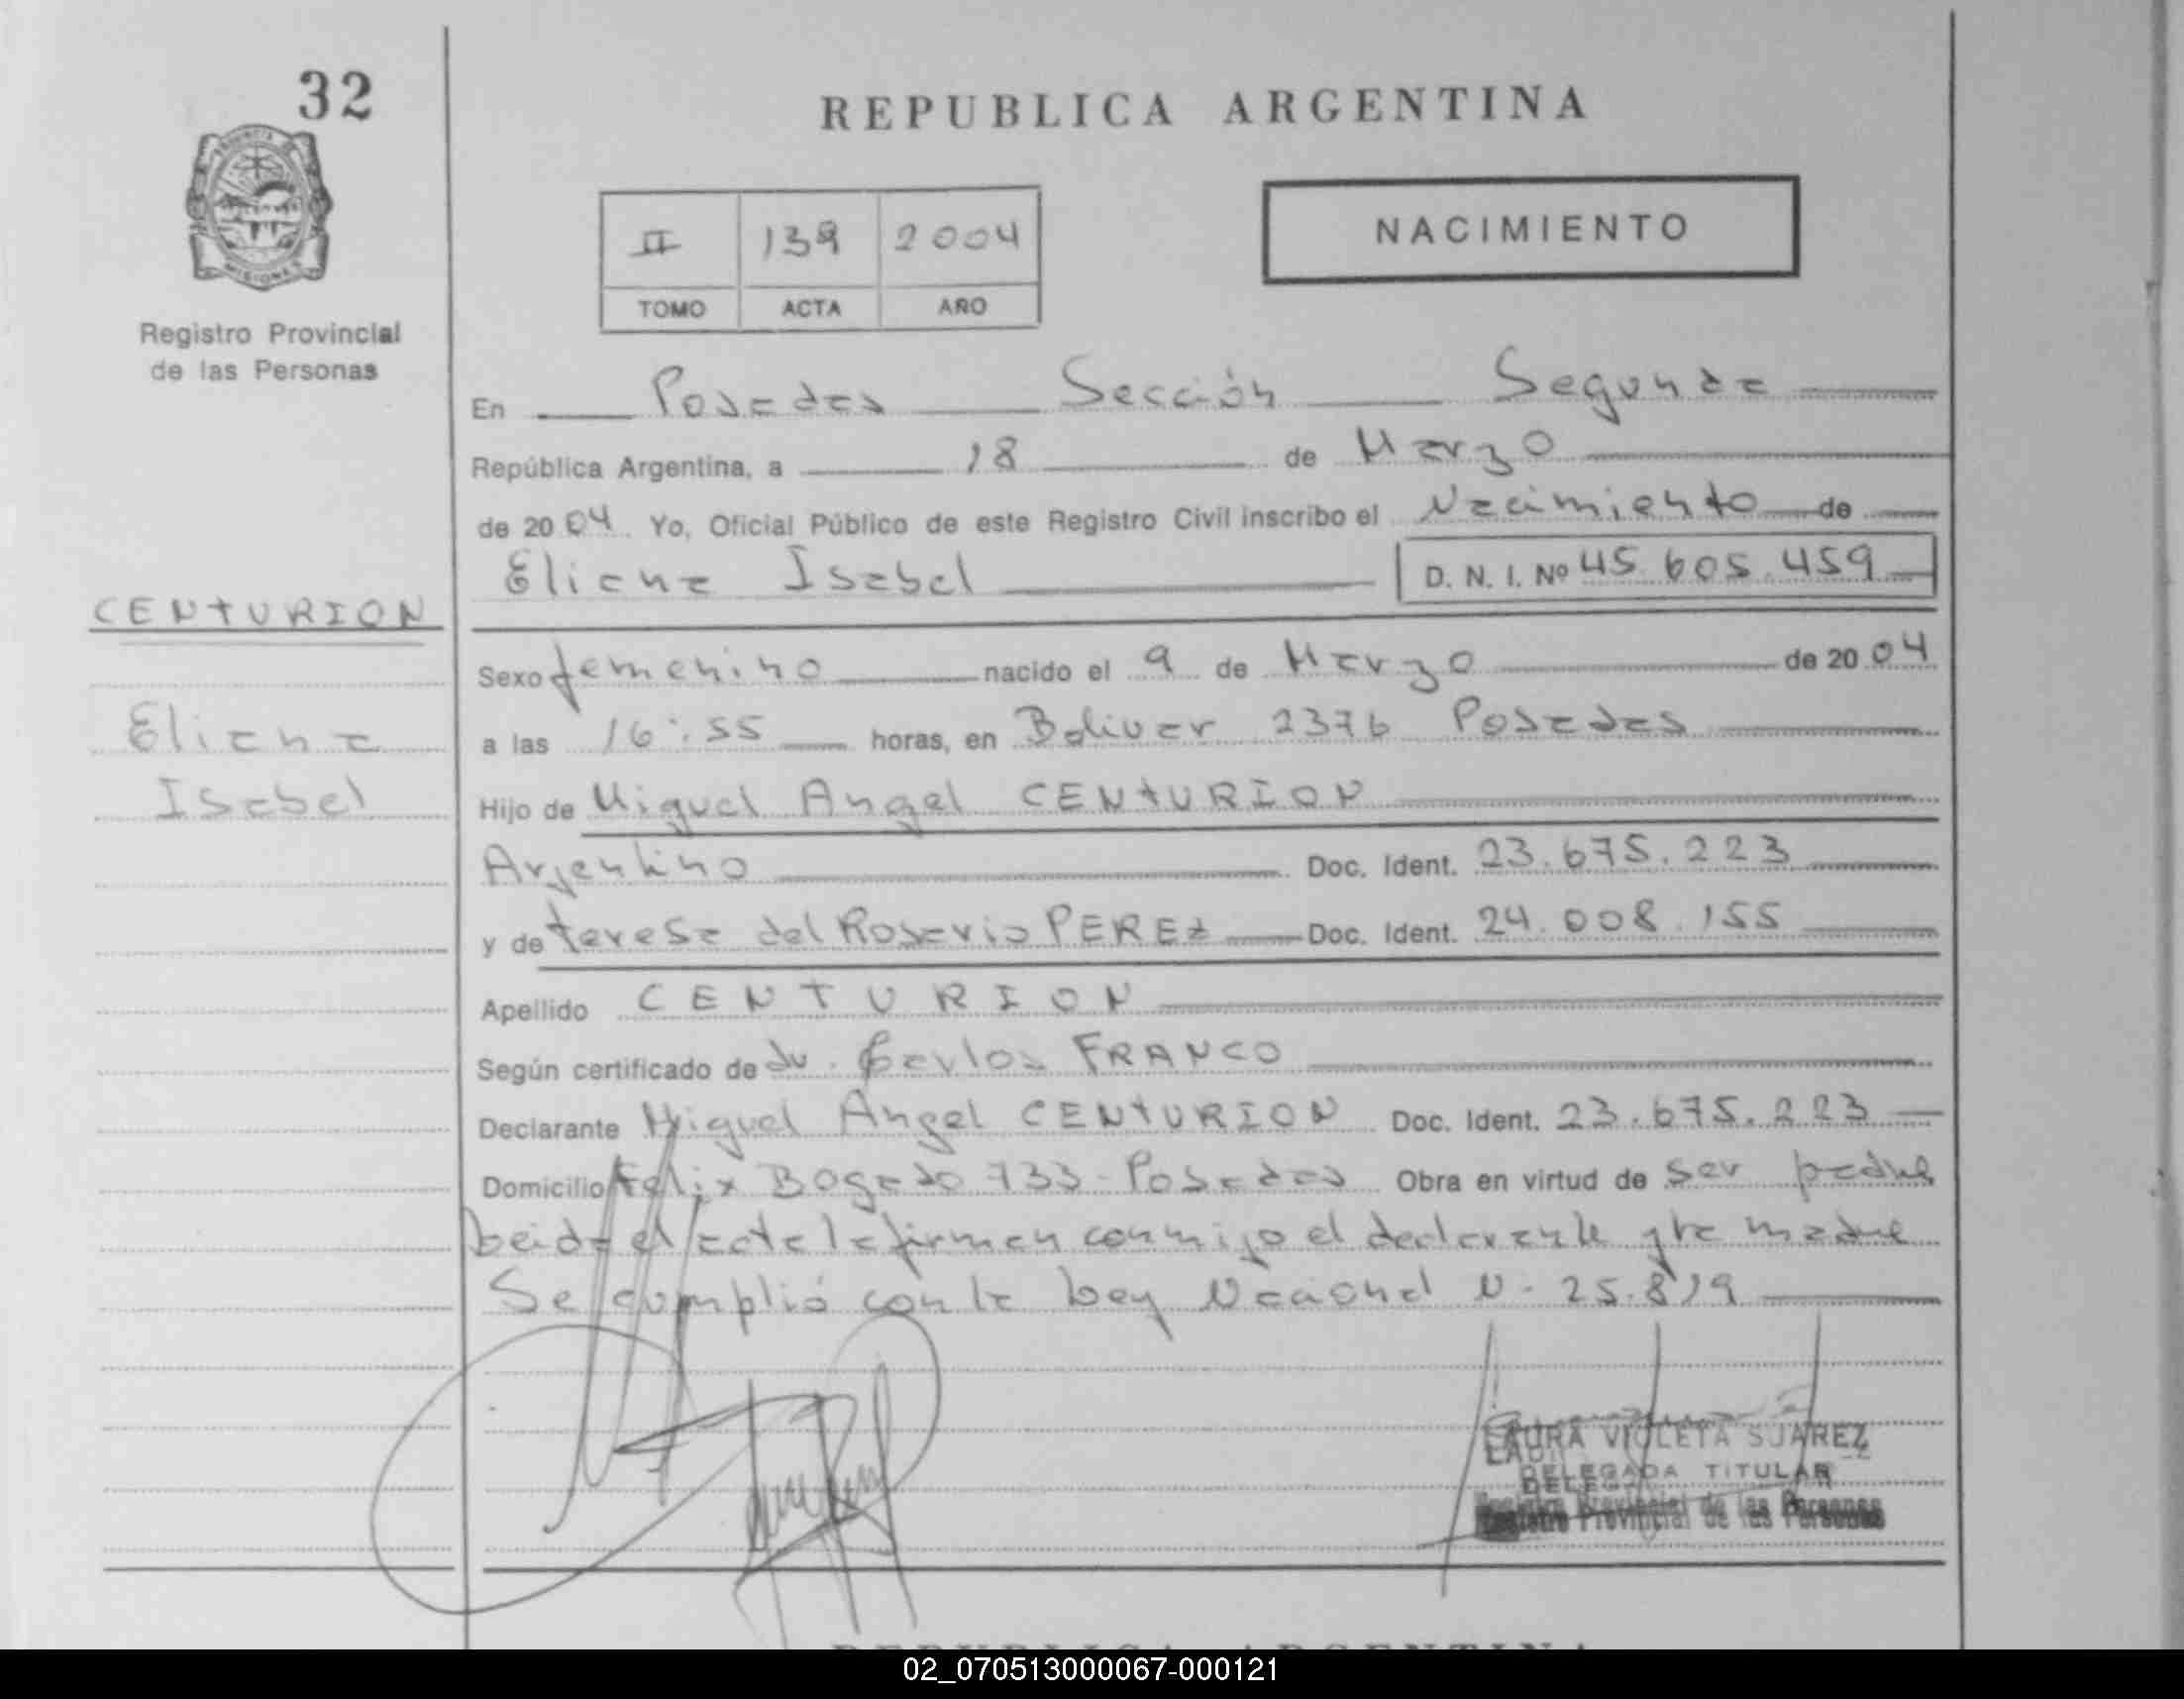 32
REPUBLICA ARGENTINA
PROVINCIA DE
MISIONES
II 139 2004
TOMO ACTA AÑO
NACIMIENTO
Registro Provincial
de las Personas
En Posadas Sección Segunda
República Argentina, a 18 de Marzo
de 2004. Yo, Oficial Público de este Registro Civil inscribo el Nacimiento de
Eliana Isabel D. N. I. Nº 45.605.459
CENTURION
Eliana
Isabel
Sexo femenino nacido el 9 de Marzo de 2004
a las 16:55 horas, en Bolivar 2376 Posadas
Hijo de Miguel Angel CENTURION
Argentino Doc. Ident. 23.675.223
y de Teresa del Rosario PEREZ Doc. Ident. 24.008.155
Apellido CENTURION
Según certificado de dr. Carlos FRANCO
Declarante Miguel Angel CENTURION Doc. Ident. 23.675.223
Domicilio Felix Bogado 733 - Posadas Obra en virtud de ser padre
Leida el acta la firman conmigo el declarante y la madre
Se cumplió con la Ley Nacional N- 25.819
LAURA VIOLETA SUAREZ
DELEGADA TITULAR
Registro Provincial de las Personas
REPUBLICA ARGENTINA
02_070513000067-000121